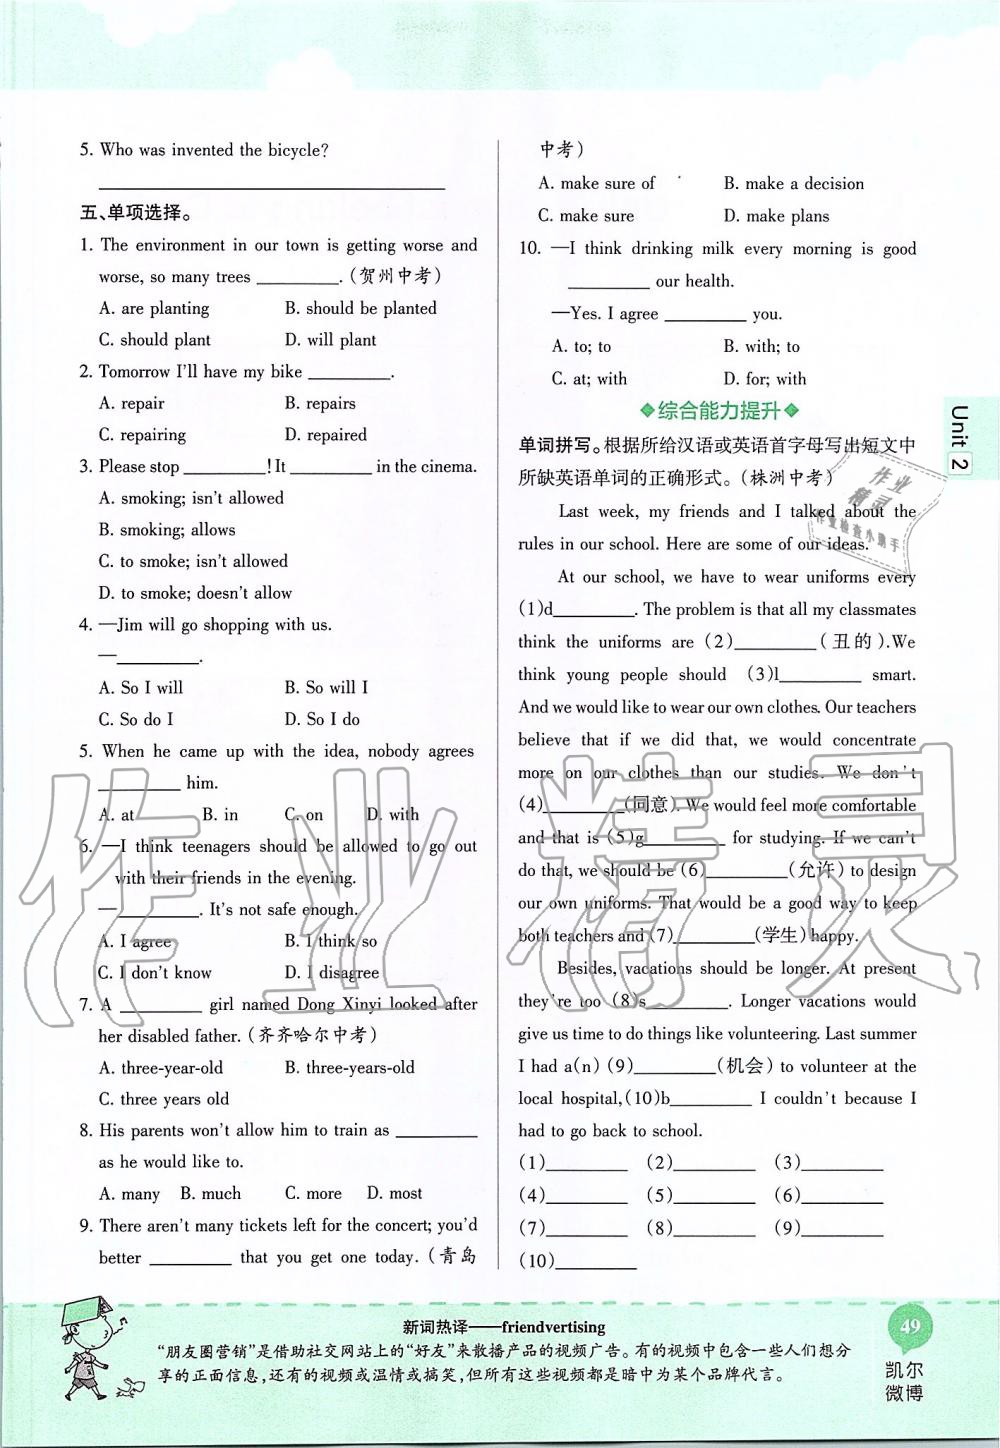 5. Who was invented the bicycle?
五、单项选择。
1. The environment in our town is getting worse and
worse, so many trees _________.(贺州中考)
A. are planting B. should be planted
C. should plant D. will plant
2. Tomorrow I'll have my bike _________.
A. repair B. repairs
C. repairing D. repaired
3. Please stop _________! It _________ in the cinema.
A. smoking; isn't allowed
B. smoking; allows
C. to smoke; isn't allowed
D. to smoke; doesn't allow
4. —Jim will go shopping with us.
—_________.
A. So I will B. So will I
C. So do I D. So I do
5. When he came up with the idea, nobody agrees
_________ him.
A. at B. in C. on D. with
6. —I think teenagers should be allowed to go out
with their friends in the evening.
—_________. It's not safe enough.
A. I agree B. I think so
C. I don't know D. I disagree
7. A _________ girl named Dong Xinyi looked after
her disabled father.(齐齐哈尔中考)
A. three-year-old B. three-years-old
C. three years old
8. His parents won't allow him to train as _________
as he would like to.
A. many B. much C. more D. most
9. There aren't many tickets left for the concert; you'd
better _________ that you get one today.(青岛
中考)
A. make sure of B. make a decision
C. make sure D. make plans
10. —I think drinking milk every morning is good
_________ our health.
—Yes. I agree _________ you.
A. to; to B. with; to
C. at; with D. for; with
综合能力提升
单词拼写。根据所给汉语或英语首字母写出短文中
所缺英语单词的正确形式。(株洲中考)
Last week, my friends and I talked about the
rules in our school. Here are some of our ideas.
At our school, we have to wear uniforms every
(1)d_________. The problem is that all my classmates
think the uniforms are (2)_________(丑的).We
think young people should (3)l_________ smart.
And we would like to wear our own clothes. Our teachers
believe that if we did that, we would concentrate
more on our clothes than our studies. We don't
(4)_________(同意). We would feel more comfortable
and that is (5)g_________ for studying. If we can't
do that, we should be (6)_________(允许) to design
our own uniforms. That would be a good way to keep
both teachers and (7)_________(学生) happy.
Besides, vacations should be longer. At present
they're too (8)s_________. Longer vacations would
give us time to do things like volunteering. Last summer
I had a(n) (9)_________(机会) to volunteer at the
local hospital,(10)b_________ I couldn't because I
had to go back to school.
(1)_________ (2)_________ (3)_________
(4)_________ (5)_________ (6)_________
(7)_________ (8)_________ (9)_________
(10)_________
Unit 2
作业
精灵
作业检查小助手
作业精灵
新词热译——friendvertising
“朋友圈营销”是借助社交网站上的“好友”来散播产品的视频广告。有的视频中包含一些人们想分
享的正面信息,还有的视频或温情或搞笑,但所有这些视频都是暗中为某个品牌代言。
49
凯尔
微博